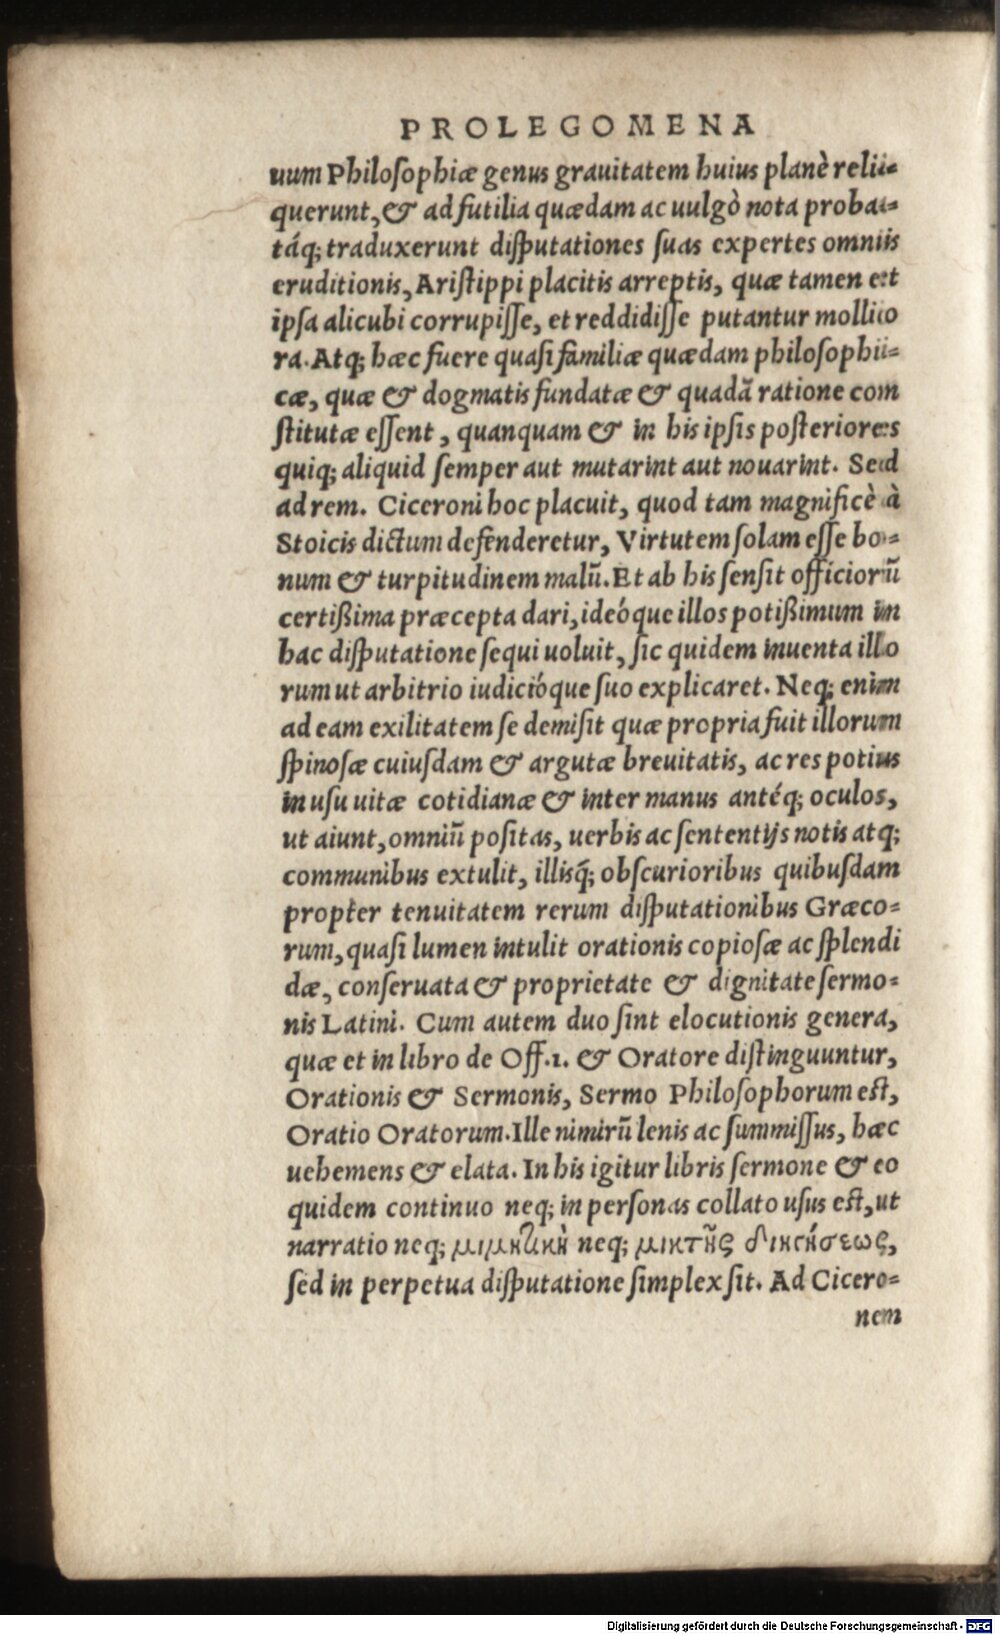 PROLEGOMENA
uum Philoſophiæ genus grauitatem huius planè relii⸗
querunt, & ad futilia quædam ac uulgò nota probai⸗
táq; traduxerunt diſputationes ſuas expertes omniis
eruditionis, Ariſtippi placitis arreptis, quæ tamen et
ipſa alicubi corrupiſſe, et reddidiſſe putantur mollio
ra. Atq; hæc fuere quaſi familiæ quædam philoſophi⸗
cæ, quæ & dogmatis fundatæ & quadã ratione con
ſtitutæ eſſent, quanquam & in his ipſis poſteriores
quiq; aliquid ſemper aut mutarint aut nouarint. Sed
ad rem. Ciceroni hoc placuit, quod tam magnificè à
Stoicis dictum defenderetur, Virtutem ſolam eſſe bo⸗
num & turpitudinem malũ. Et ab his ſenſit officiorũ
certißima præcepta dari, ideóque illos potißimum in
hac diſputatione ſequi uoluit, ſic quidem inuenta illo
rum ut arbitrio iudicióque ſuo explicaret. Neq; enim
ad eam exilitatem ſe demiſit quæ propria fuit illorum
ſpinoſæ cuiuſdam & argutæ breuitatis, ac res potius
in uſu uitæ cotidianæ & inter manus antéq; oculos,
ut aiunt, omniũ poſitas, uerbis ac ſententijs notis atq;
communibus extulit, illisq́; obſcurioribus quibuſdam
propter tenuitatem rerum diſputationibus Græco⸗
rum, quaſi lumen intulit orationis copioſæ ac ſplendi
dæ, conſeruata & proprietate & dignitate ſermo⸗
nis Latini. Cum autem duo ſint elocutionis genera,
quæ et in libro de Off.1. & Oratore diſtinguuntur,
Orationis & Sermonis, Sermo Philoſophorum eſt,
Oratio Oratorum. Ille nimirũ lenis ac ſummiſſus, hæc
uehemens & elata. In his igitur libris ſermone & eo
quidem continuo neq; in perſonas collato uſus eſt, ut
narratio neq; μιμητικὴ neq; μικτῆς διηγήσεως,
ſed in perpetua diſputatione ſimplex ſit. Ad Cicero⸗
nem
Digitalisierung gefördert durch die Deutsche Forschungsgemeinschaft - DFG